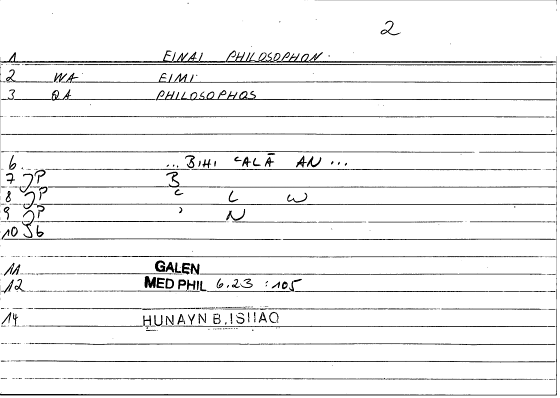 2
1 EINAI PHILOSOPHON.
2 WA EIMI
3 QA PHILOSOPHOS
6. ... BIHI ʿALĀ AN ...
7 JP B
8 JP ʿ L W
9 JP ʾ N
10 Jb
11 GALEN
12 MED PHIL 6.23 :105
14 HUNAYN B.ISHAQ